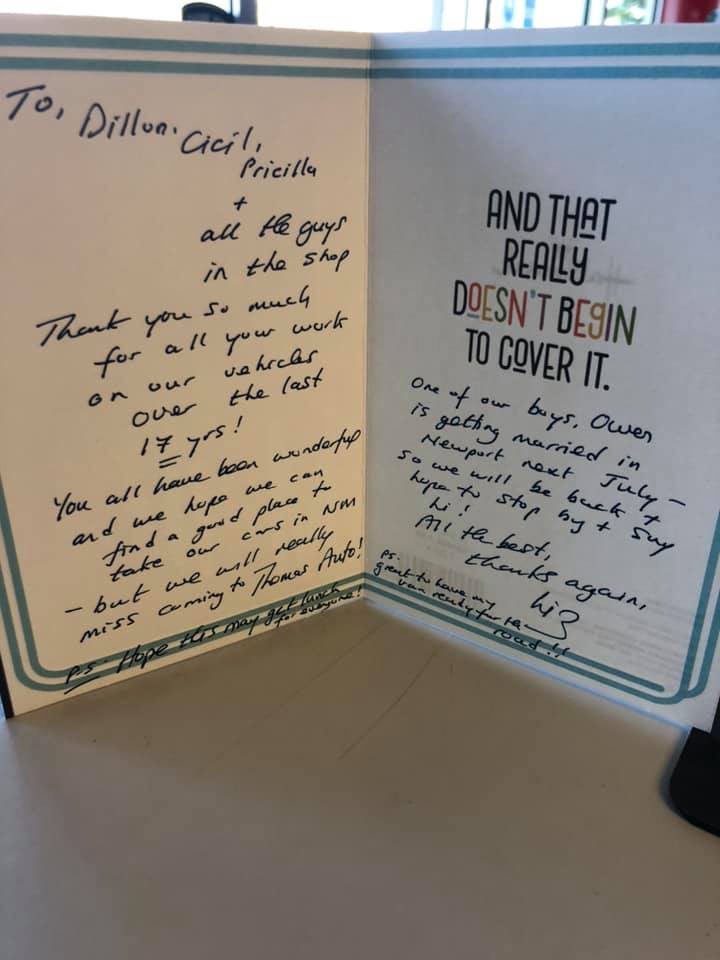 To, Dillon. Cicil,
Pricilla
+
all the guys
in the shop
Thank you so much
for all your work
on our vehicles
over the last
17 yrs!
You all have been wonderful
and we hope we can
find a good place to
take our cars in NM
- but we will really
miss coming to Thomas Auto!
PS. Hope this may get lunch
for everyone!
AND THAT
REALLY
DOESN'T BEGIN
TO COVER IT.
One of our boys, Owen
is getting married in
Newport next July -
so we will be back +
hope to stop by + say
hi!
All the best,
thanks again,
Liz
PS.
great to have my
van ready for the
road!!